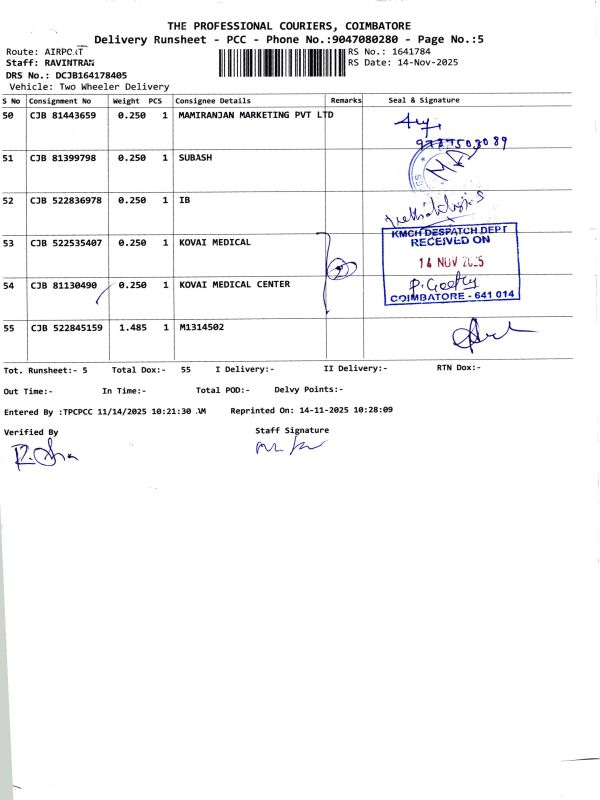 THE PROFESSIONAL COURIERS, COIMBATORE
Delivery Runsheet - PCC - Phone No.:9047080280 - Page No.:5
Route: AIRPORT RS No.: 1641784
Staff: RAVINTRAN RS Date: 14-Nov-2025
DRS No.: DCJB164178405
Vehicle: Two Wheeler Delivery
S No Consignment No Weight PCS Consignee Details Remarks Seal & Signature
50 CJB 81443659 0.250 1 MAMIRANJAN MARKETING PVT LTD
51 CJB 81399798 0.250 1 SUBASH
52 CJB 522836978 0.250 1 IB
53 CJB 522535407 0.250 1 KOVAI MEDICAL
KMCH DESPATCH DEPT
RECEIVED ON
14 NOV 2025
54 CJB 81130490 0.250 1 KOVAI MEDICAL CENTER
P. Geetha
COIMBATORE - 641 014
55 CJB 522845159 1.485 1 M1314502
Tot. Runsheet:- 5 Total Dox:- 55 I Delivery:- II Delivery:- RTN Dox:-
Out Time:- In Time:- Total POD:- Delvy Points:-
Entered By :TPCPCC 11/14/2025 10:21:30 AM Reprinted On: 14-11-2025 10:28:09
Verified By Staff Signature